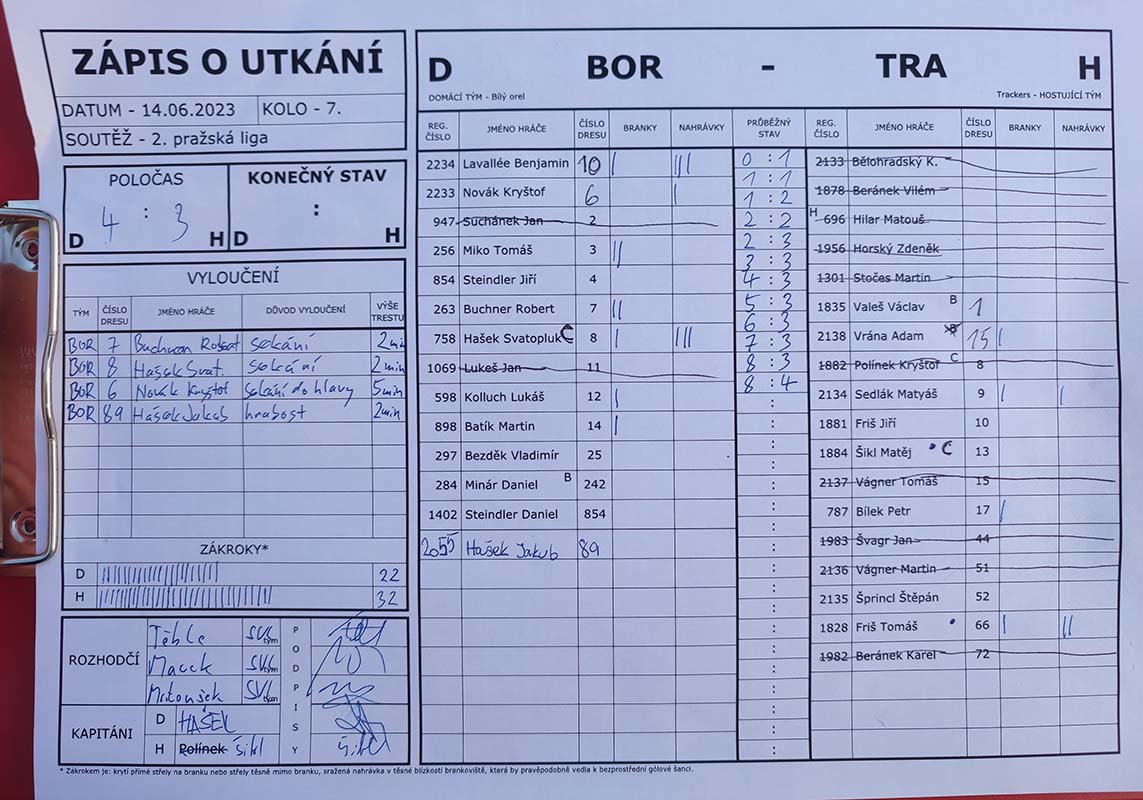 ZÁPIS O UTKÁNÍ
DATUM - 14.06.2023 KOLO - 7.
SOUTĚŽ - 2. pražská liga
POLOČAS KONEČNÝ STAV
4 : 3 :
D H D H
VYLOUČENÍ
TÝM ČÍSLO DRESU JMÉNO HRÁČE DŮVOD VYLOUČENÍ VÝŠE TRESTU
BOR 7 Robert sekání 2min
BOR 8 Hašek Svat. sekání 2min
BOR 6 Novák Kryštof sekání do hlavy 5min
BOR 89 Hašek Jakub hrubost 2min
ZÁKROKY*
D 22
H 32
ROZHODČÍ
Macek
Matoušek
PODPISY
KAPITÁNI
D HAŠEK
H Polínek Šikl Šikl
D BOR - TRA H
DOMÁCÍ TÝM - Bílý orel Trackers - HOSTUJÍCÍ TÝM
REG. ČÍSLO JMÉNO HRÁČE ČÍSLO DRESU BRANKY NAHRÁVKY PRŮBĚŽNÝ STAV REG. ČÍSLO JMÉNO HRÁČE ČÍSLO DRESU BRANKY NAHRÁVKY
2234 Lavallée Benjamin 10 | |||
2233 Novák Kryštof 6 |
947 Suchánek Jan 2
256 Miko Tomáš 3 ||
854 Steindler Jiří 4
263 Buchner Robert 7 ||
758 Hašek Svatopluk C 8 | |||
1069 Lukeš Jan 11
598 Kolluch Lukáš 12 |
898 Batík Martin 14 |
297 Bezděk Vladimír 25
284 Minár Daniel B 242
1402 Steindler Daniel 854
2055 Hašek Jakub 89
0 : 1
1 : 1
1 : 2
2 : 2
2 : 3
3 : 3
4 : 3
5 : 3
6 : 3
7 : 3
8 : 3
8 : 4
2133 Bělohradský K.
1878 Beránek Vilém
H 696 Hilar Matouš
1956 Horský Zdeněk
1301 Stočes Martin
1835 Valeš Václav B 1
2138 Vrána Adam B 15 |
1882 Polínek Kryštof C 8
2134 Sedlák Matyáš 9 | |
1881 Friš Jiří 10
1884 Šikl Matěj C 13
2137 Vágner Tomáš 15
787 Bílek Petr 17 |
1983 Švagr Jan 44
2136 Vágner Martin 51
2135 Šprincl Štěpán 52
1828 Friš Tomáš 66 | ||
1982 Beránek Karel 72
* Zákrokem je: krytí přímé střely na branku nebo střely těsně mimo branku, sražená nahrávka v těsné blízkosti brankoviště, která by pravěpodobně vedla k bezprostřední gólové šanci.